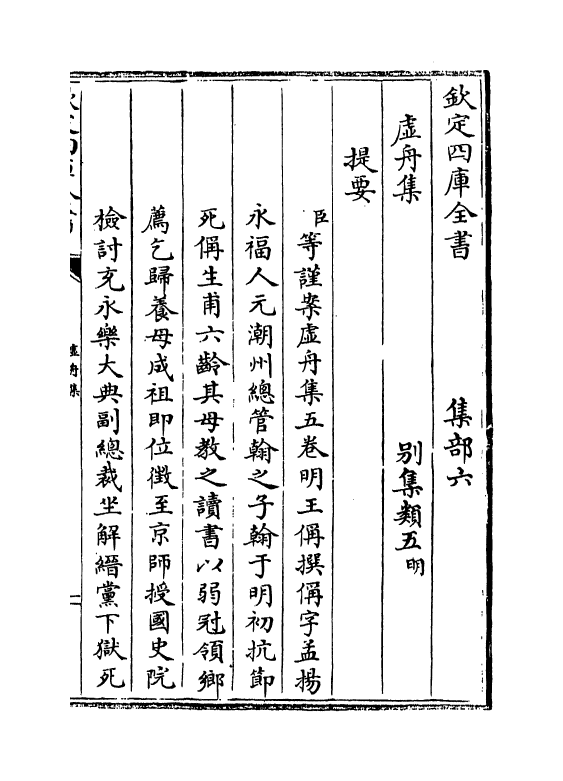 欽定四庫全書　集部六
虛舟集　別集類五明
提要
臣等謹案虛舟集五卷明王偁撰偁字孟揚
永福人元潮州總管翰之子翰于明初抗節
死偁生甫六齡其母教之讀書以弱冠領鄉
薦乞歸養母成祖即位徴至京師授國史院
檢討充永樂大典副總裁坐解縉黨下獄死
虛舟集
一